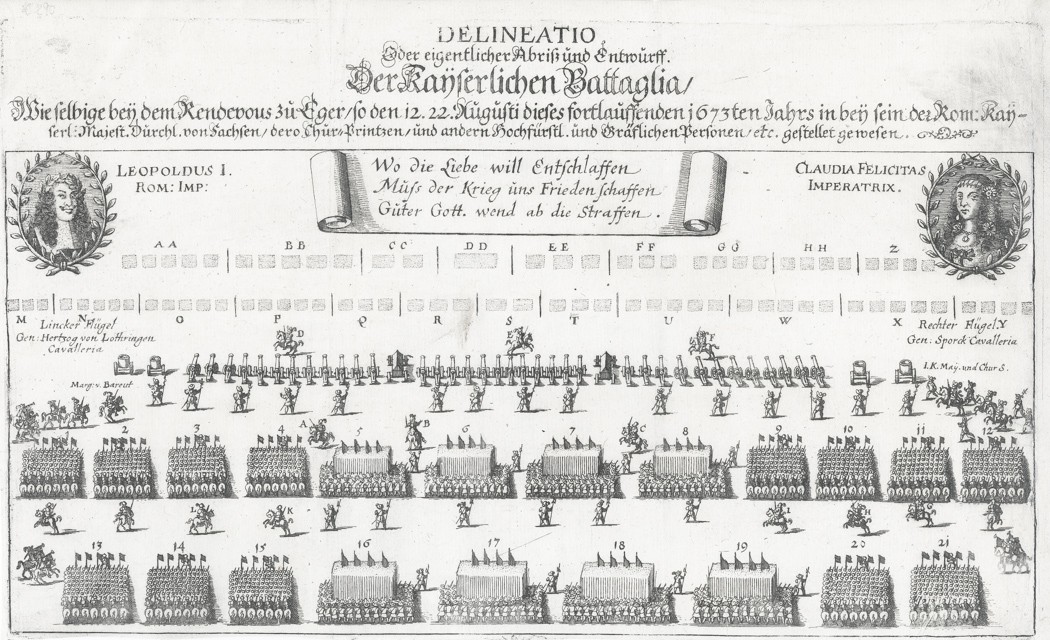 DELINEATIO
Oder eigentlicher Abriß und Entwurff.
Der Kaÿserlichen Battaglia/
Wie selbige beÿ dem Rendevous zu Eger/ so den 12. 22. Augusti dieses fortlauffenden 1673ten Jahrs in beÿ sein der Rom: Kaÿ-
serl: Majest. Dürchl. von Sachsen/ dero Chür-Printzen/ und andern Hochfürstl. und Gräflichen Personen/ etc. gestellet gewesen.
LEOPOLDUS I.
ROM: IMP:
Wo die Liebe will Entschlaffen
Müss der Krieg üns Frieden schaffen
Güter Gott. wend ab die Straffen.
CLAUDIA FELICITAS
IMPERATRIX.
AA BB CC DD EE FF GG HH Z
M N O P Q R S T U W X Y
Lincker Flügel
Gen: Hertzog von Lothringen
Cavalleria
Rechter Flügel
Gen. Sporck Cavalleria
D E F
Marg: v. Bareut
I.K. Maÿ. und Chur S.
A B C
1 2 3 4 5 6 7 8 9 10 11 12
L K I H G
13 14 15 16 17 18 19 20 21